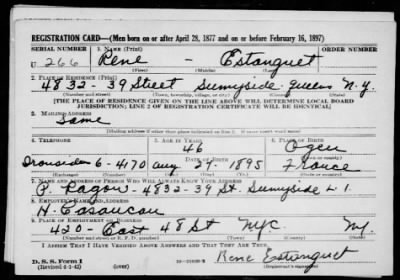 REGISTRATION CARD—(Men born on or after April 28, 1877 and on or before February 16, 1897)
SERIAL NUMBER 1. NAME (Print) ORDER NUMBER
U 266 Rene - Estanguet
(First) (Middle) (Last)
2. PLACE OF RESIDENCE (Print)
4832-39 Street Sunnyside Queens N.Y.
(Number and street) (Town, township, village, or city) (County) (State)
[THE PLACE OF RESIDENCE GIVEN ON THE LINE ABOVE WILL DETERMINE LOCAL BOARD
JURISDICTION; LINE 2 OF REGISTRATION CERTIFICATE WILL BE IDENTICAL]
3. MAILING ADDRESS
Same
[Mailing address if other than place indicated on line 2. If same insert word same]
4. TELEPHONE 5. AGE IN YEARS 6. PLACE OF BIRTH
46 Ogeu
DATE OF BIRTH
Ironsides 6-4170 Aug 27 1895 France
7. NAME AND ADDRESS OF PERSON WHO WILL ALWAYS KNOW YOUR ADDRESS
P. Pagou - 4832-39 St. Sunnyside L.I.
8. EMPLOYER'S NAME AND ADDRESS
H. Casaucau
9. PLACE OF EMPLOYMENT OR BUSINESS
420-East 48 St NYC NY.
(Number and street or R. F. D. number) (Town) (County) (State)
I AFFIRM THAT I HAVE VERIFIED ABOVE ANSWERS AND THAT THEY ARE TRUE.
D. S. S. Form 1
(Revised 4-1-42) (over)
Rene Estanguet